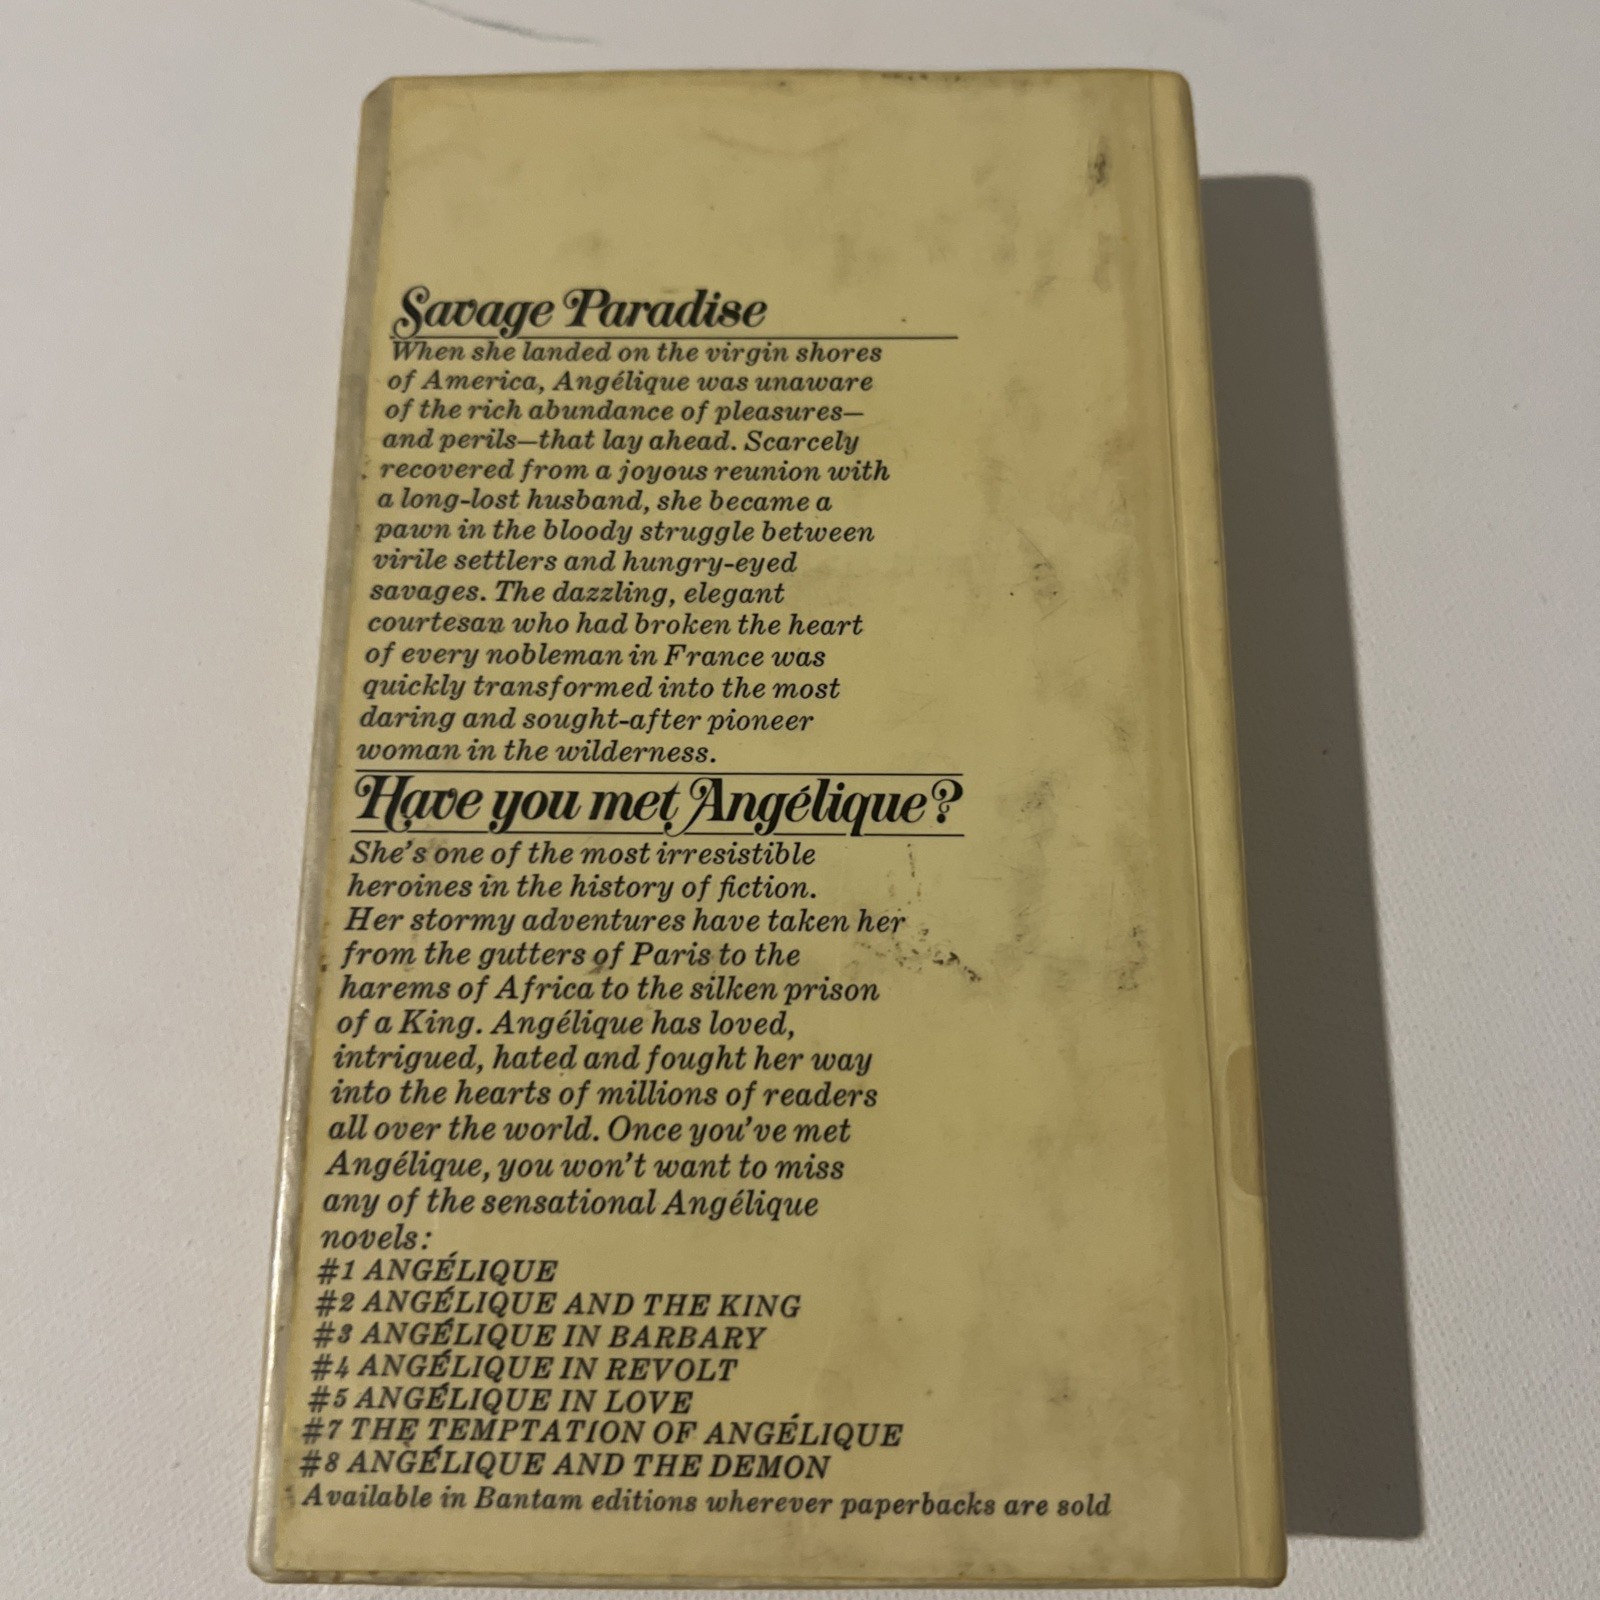 Savage Paradise
When she landed on the virgin shores
of America, Angélique was unaware
of the rich abundance of pleasures—
and perils—that lay ahead. Scarcely
recovered from a joyous reunion with
a long-lost husband, she became a
pawn in the bloody struggle between
virile settlers and hungry-eyed
savages. The dazzling, elegant
courtesan who had broken the heart
of every nobleman in France was
quickly transformed into the most
daring and sought-after pioneer
woman in the wilderness.
Have you met Angélique?
She's one of the most irresistible
heroines in the history of fiction.
Her stormy adventures have taken her
from the gutters of Paris to the
harems of Africa to the silken prison
of a King. Angélique has loved,
intrigued, hated and fought her way
into the hearts of millions of readers
all over the world. Once you've met
Angélique, you won't want to miss
any of the sensational Angélique
novels:
#1 ANGÉLIQUE
#2 ANGÉLIQUE AND THE KING
#3 ANGÉLIQUE IN BARBARY
#4 ANGÉLIQUE IN REVOLT
#5 ANGÉLIQUE IN LOVE
#7 THE TEMPTATION OF ANGÉLIQUE
#8 ANGÉLIQUE AND THE DEMON
Available in Bantam editions wherever paperbacks are sold